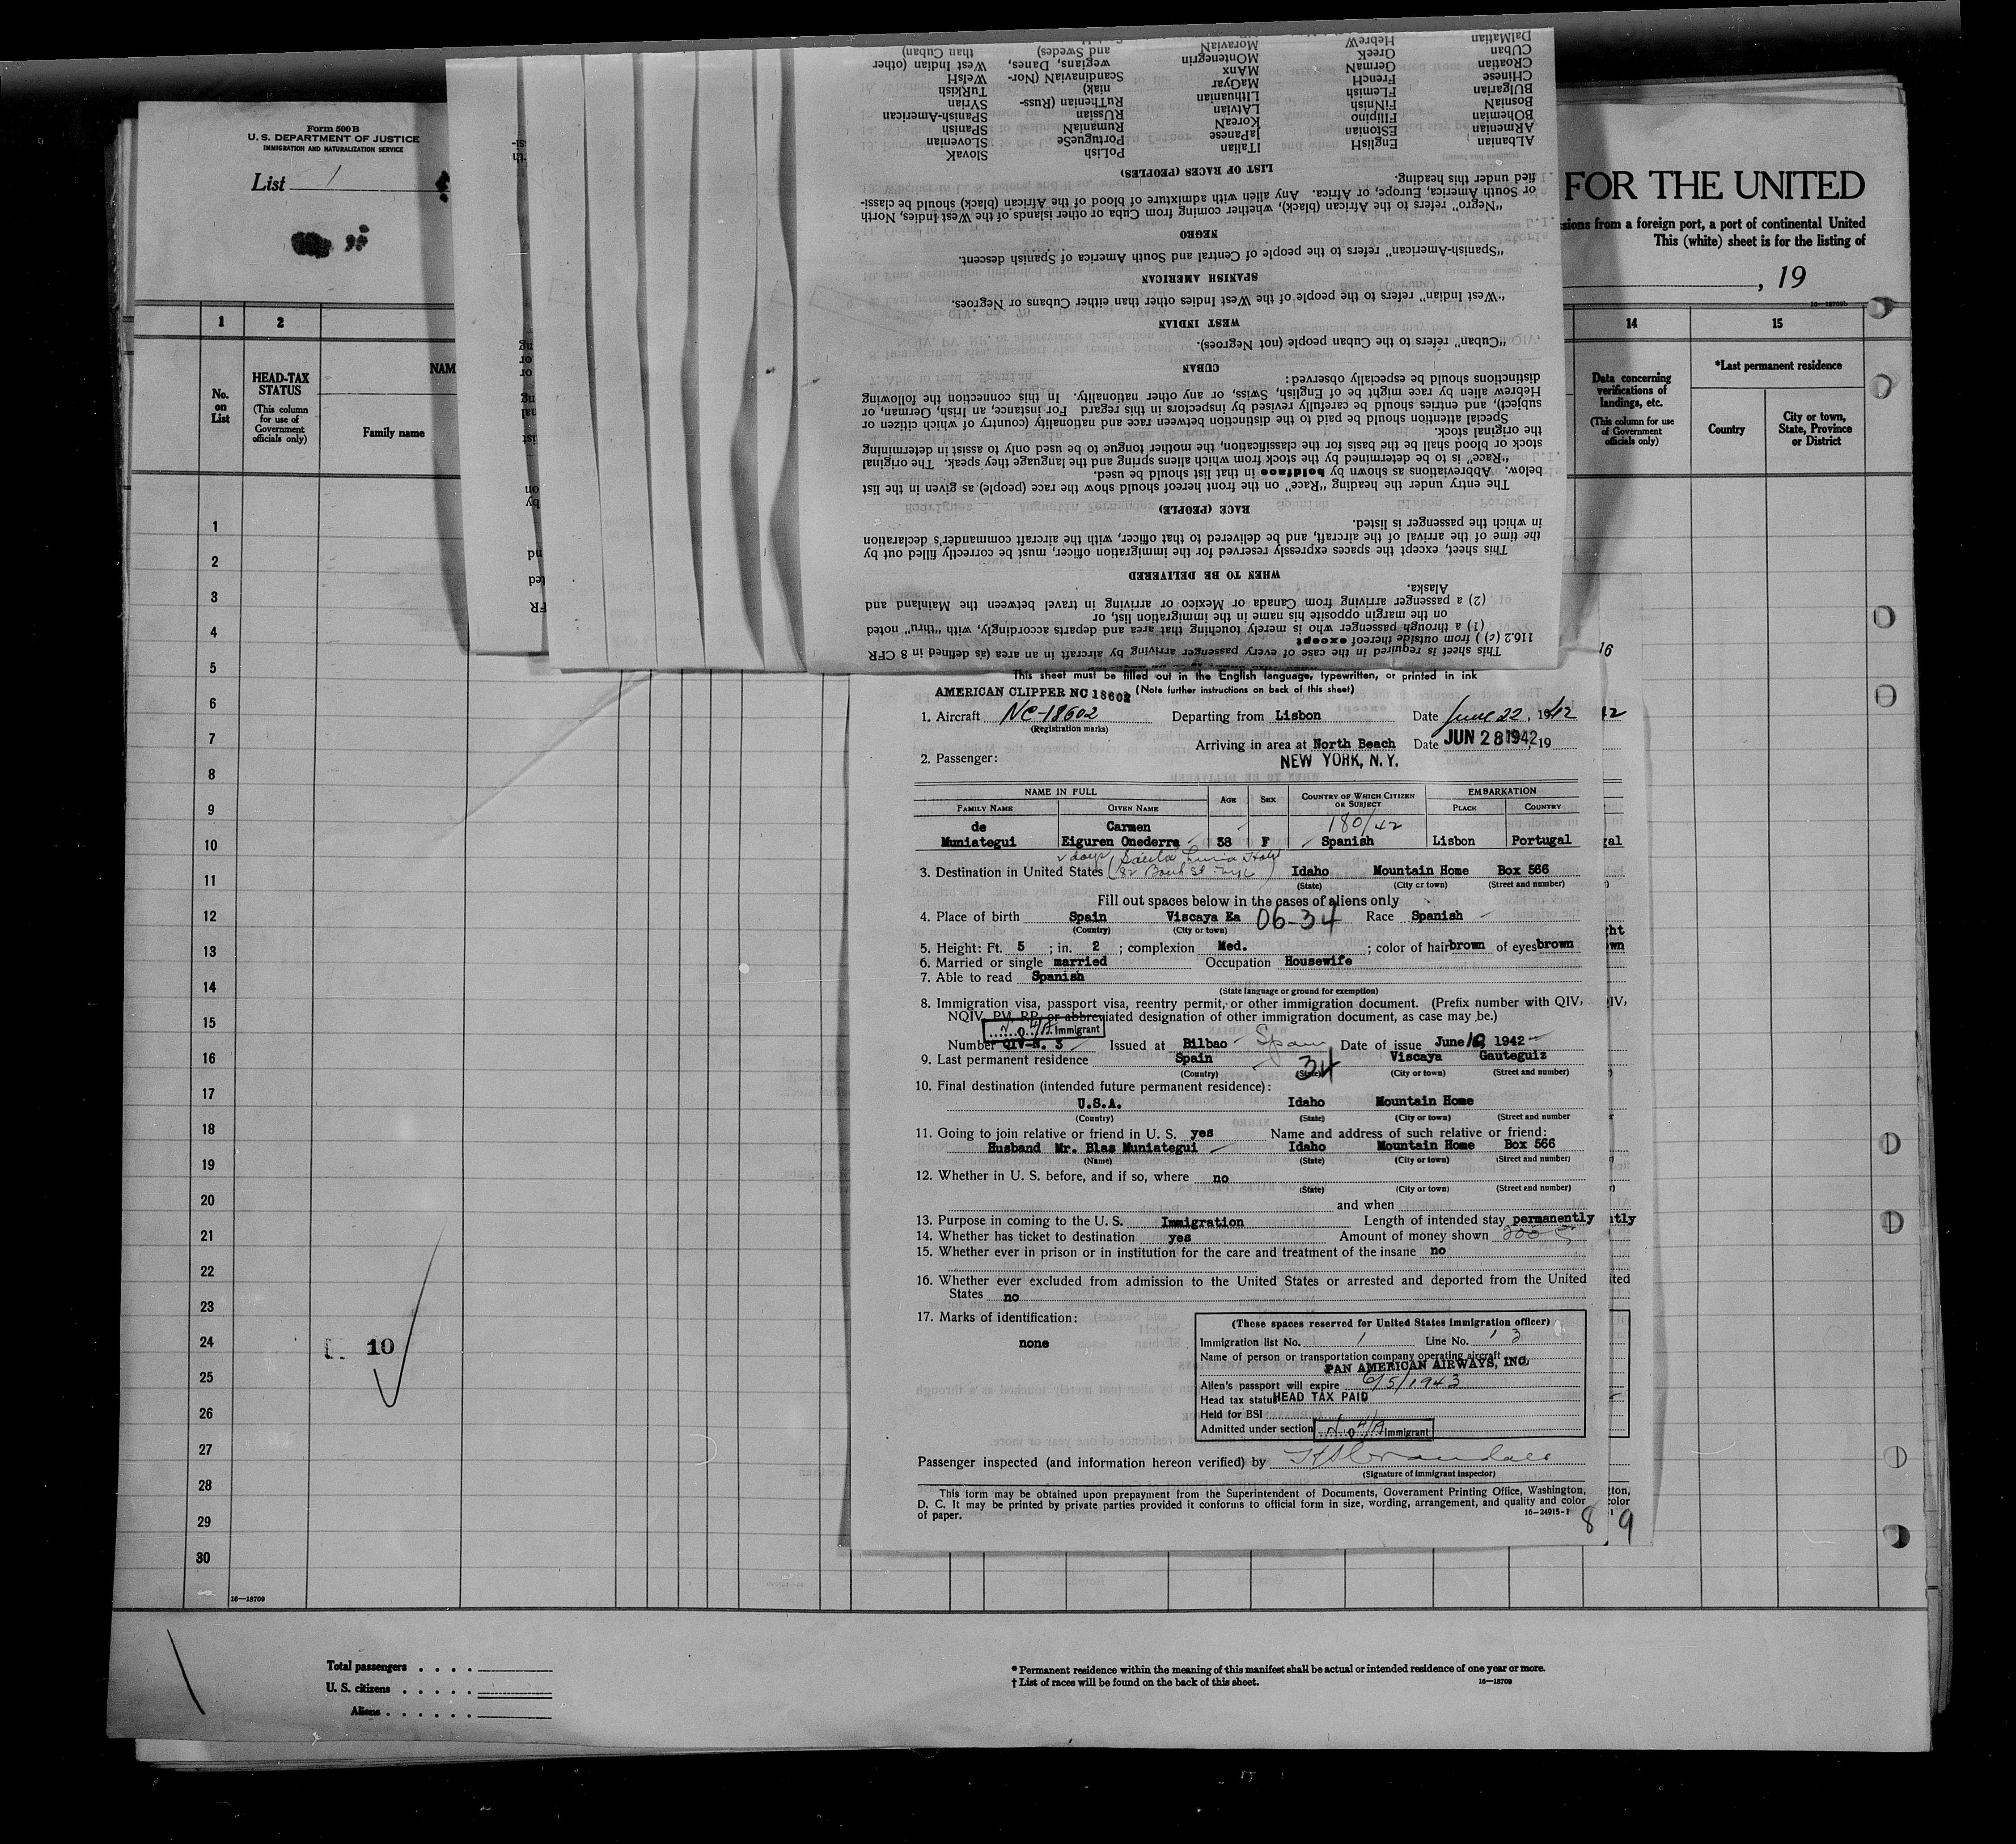 DalMatian HebreW MoravIaN and Swedes) than Cuban)
CUban GreeK MOntenegrin wegians, Danes, West Indian (other
CRoatian GermaN MAnx Scandinavian (Nor- WelsH
CHinese FrencH MaGyar niak) TuRkish
BUlgarian FLemish LIthuanian RuThenian (Russ- SYrian
BosniaN FiNNish LAtvian RUssian SPanish-American
BOhemian Filipino KoreaN RumaniaN SPanish
ARmenian EStonian JaPanese PortugueSe SLovenian
ALbanian EnglisH ITalian PoLish SlovaK
LIST OF RACES (PEOPLES)
fied under this heading.
or South America, Europe, or Africa. Any alien with admixture of blood of the African (black) should be classi-
"Negro" refers to the African (black), whether coming from Cuba or other islands of the West Indies, North
NEGRO
"Spanish-American" refers to the people of Central and South America of Spanish descent.
SPANISH AMERICAN
"West Indian" refers to the people of the West Indies other than either Cubans or Negroes.
WEST INDIAN
"Cuban" refers to the Cuban people (not Negroes).
CUBAN
distinctions should be especially observed:
Hebrew alien by race might be of English, Swiss, or any other nationality. In this connection the following
subject), and entries should be carefully revised by inspectors in this regard For instance, an Irish, German, or
Special attention should be paid to the distinction between race and nationality (country of which citizen or
the original stock.
stock or blood shall be the basis for the classification, the mother tongue to be used only to assist in determining
"Race" is to be determined by the stock from which aliens spring and the language they speak. The original
below. Abbreviations as shown by boldface in that list should be used.
The entry under the heading "Race" on the front hereof should show the race (people) as given in the list
RACE (PEOPLE)
in which the passenger is listed.
the time of the arrival of the aircraft, and be delivered to that officer, with the aircraft commander's declaration
This sheet, except the spaces expressly reserved for the immigration officer, must be correctly filled out by
WHEN TO BE DELIVERED
Alaska.
(2) a passenger arriving from Canada or Mexico or arriving in travel between the Mainland and
on the margin opposite his name in the immigration list, or
(1) a through passenger who is merely touching that area and departs accordingly, with "thru" noted
116.2 (c) ) from outside thereof except
This sheet is required in the case of every passenger arriving by aircraft in an area (as defined in 8 CFR
Form 500 B
U. S. DEPARTMENT OF JUSTICE
IMMIGRATION AND NATURALIZATION SERVICE
List 1
FOR THE UNITED
sions from a foreign port, a port of continental United
This (white) sheet is for the listing of
, 19
1 2 14 15
No. on List
HEAD-TAX STATUS
(This column for use of Government officials only)
NAM
Family name
Data concerning verifications of landings, etc.
(This column for use of Government officials only)
*Last permanent residence
Country
City or town, State, Province or District
1
2
3
4
5
6
7
8
9
10
11
12
13
14
15
16
17
18
19
20
21
22
23
24
25
26
27
28
29
30
10
16—18709
This sheet must be filled out in the English language, typewritten, or printed in ink
AMERICAN CLIPPER NC 18602 (Note further instructions on back of this sheet)
1. Aircraft NC-18602 Departing from Lisbon Date June 22, 1942
(Registration marks)
Arriving in area at North Beach Date JUN 28 1942, 19
2. Passenger: NEW YORK, N.Y.
NAME IN FULL AGE SEX COUNTRY OF WHICH CITIZEN OR SUBJECT EMBARKATION
FAMILY NAME GIVEN NAME PLACE COUNTRY
de Carmen 180/42
Muniategui Eiguren Onederra 38 F Spanish Lisbon Portugal
3. Destination in United States Idaho Mountain Home Box 566
(State) (City or town) (Street and number)
Fill out spaces below in the cases of aliens only
4. Place of birth Spain Viscaya Ea 06-34 Race Spanish
(Country) (City or town)
5. Height: Ft. 5 ; in. 2 ; complexion Med. ; color of hair brown of eyes brown
6. Married or single married Occupation Housewife
7. Able to read Spanish
(State language or ground for exemption)
8. Immigration visa, passport visa, reentry permit, or other immigration document. (Prefix number with QIV,
NQIV, PV, RP, or abbreviated designation of other immigration document, as case may be.)
Immigrant
Number QIV-N. 3 Issued at Bilbao Spain Date of issue June 1942
9. Last permanent residence Spain 34 Viscaya Gauteguiz
(Country) (State) (City or town) (Street and number)
10. Final destination (intended future permanent residence):
U.S.A. Idaho Mountain Home
(Country) (State) (City or town) (Street and number
11. Going to join relative or friend in U. S. yes Name and address of such relative or friend:
Husband Mr. Blas Muniategui Idaho Mountain Home Box 566
(Name) (State) (City or town) (Street and number)
12. Whether in U. S. before, and if so, where no
(State) (City or town) (Street and number)
and when
13. Purpose in coming to the U. S. Immigration Length of intended stay permanently
14. Whether has ticket to destination yes Amount of money shown 200
15. Whether ever in prison or in institution for the care and treatment of the insane no
16. Whether ever excluded from admission to the United States or arrested and deported from the United
States no
17. Marks of identification:
none
(These spaces reserved for United States immigration officer)
Immigration list No. 1 Line No. 3
Name of person or transportation company operating aircraft
PAN AMERICAN AIRWAYS, INC.
Alien's passport will expire 6/5/1943
Head tax status HEAD TAX PAID
Held for BSI
Admitted under section Immigrant
Passenger inspected (and information hereon verified) by
(Signature of immigrant inspector)
This form may be obtained upon prepayment from the Superintendent of Documents, Government Printing Office, Washington,
D. C. It may be printed by private parties provided it conforms to official form in size, wording, arrangement, and quality and color
of paper. 16—24915-1
8 9
Total passengers
U. S. citizens
Aliens
* Permanent residence within the meaning of this manifest shall be actual or intended residence of one year or more.
† List of races will be found on the back of this sheet. 16—18709